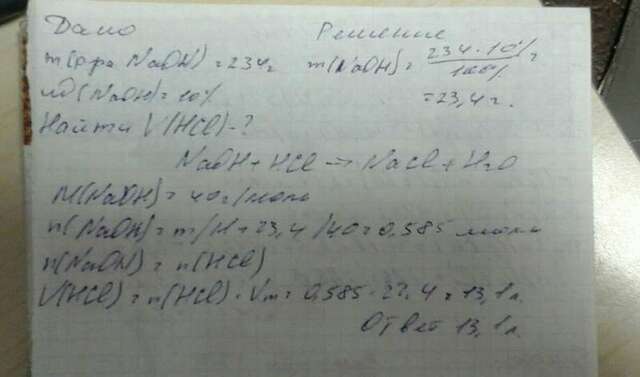 Дано Решение
m(р-ра NaOH) = 234г m(NaOH) = 234 · 10% / 100% =
ω(NaOH) = 10% = 23,4 г.
Найти V(HCl) - ?
NaOH + HCl → NaCl + H2O
M(NaOH) = 40 г/моль
n(NaOH) = m/M = 23,4/40 = 0,585 моль
n(NaOH) = n(HCl)
V(HCl) = n(HCl) · Vm = 0,585 · 22,4 = 13,1 л.
Ответ 13,1 л.